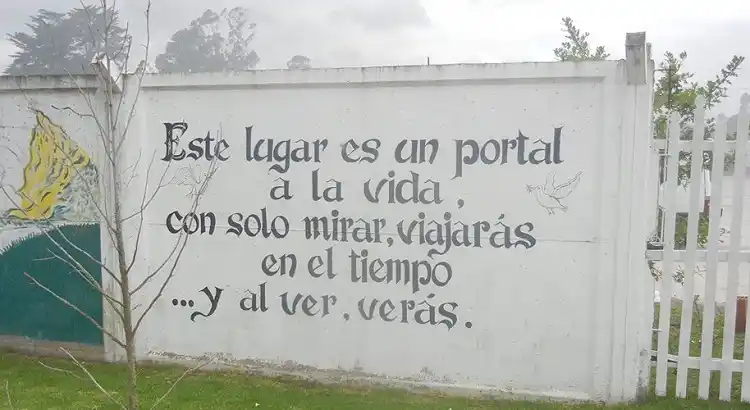 Este lugar es un portal
a la vida,
con solo mirar, viajarás
en el tiempo
...y al ver, verás.